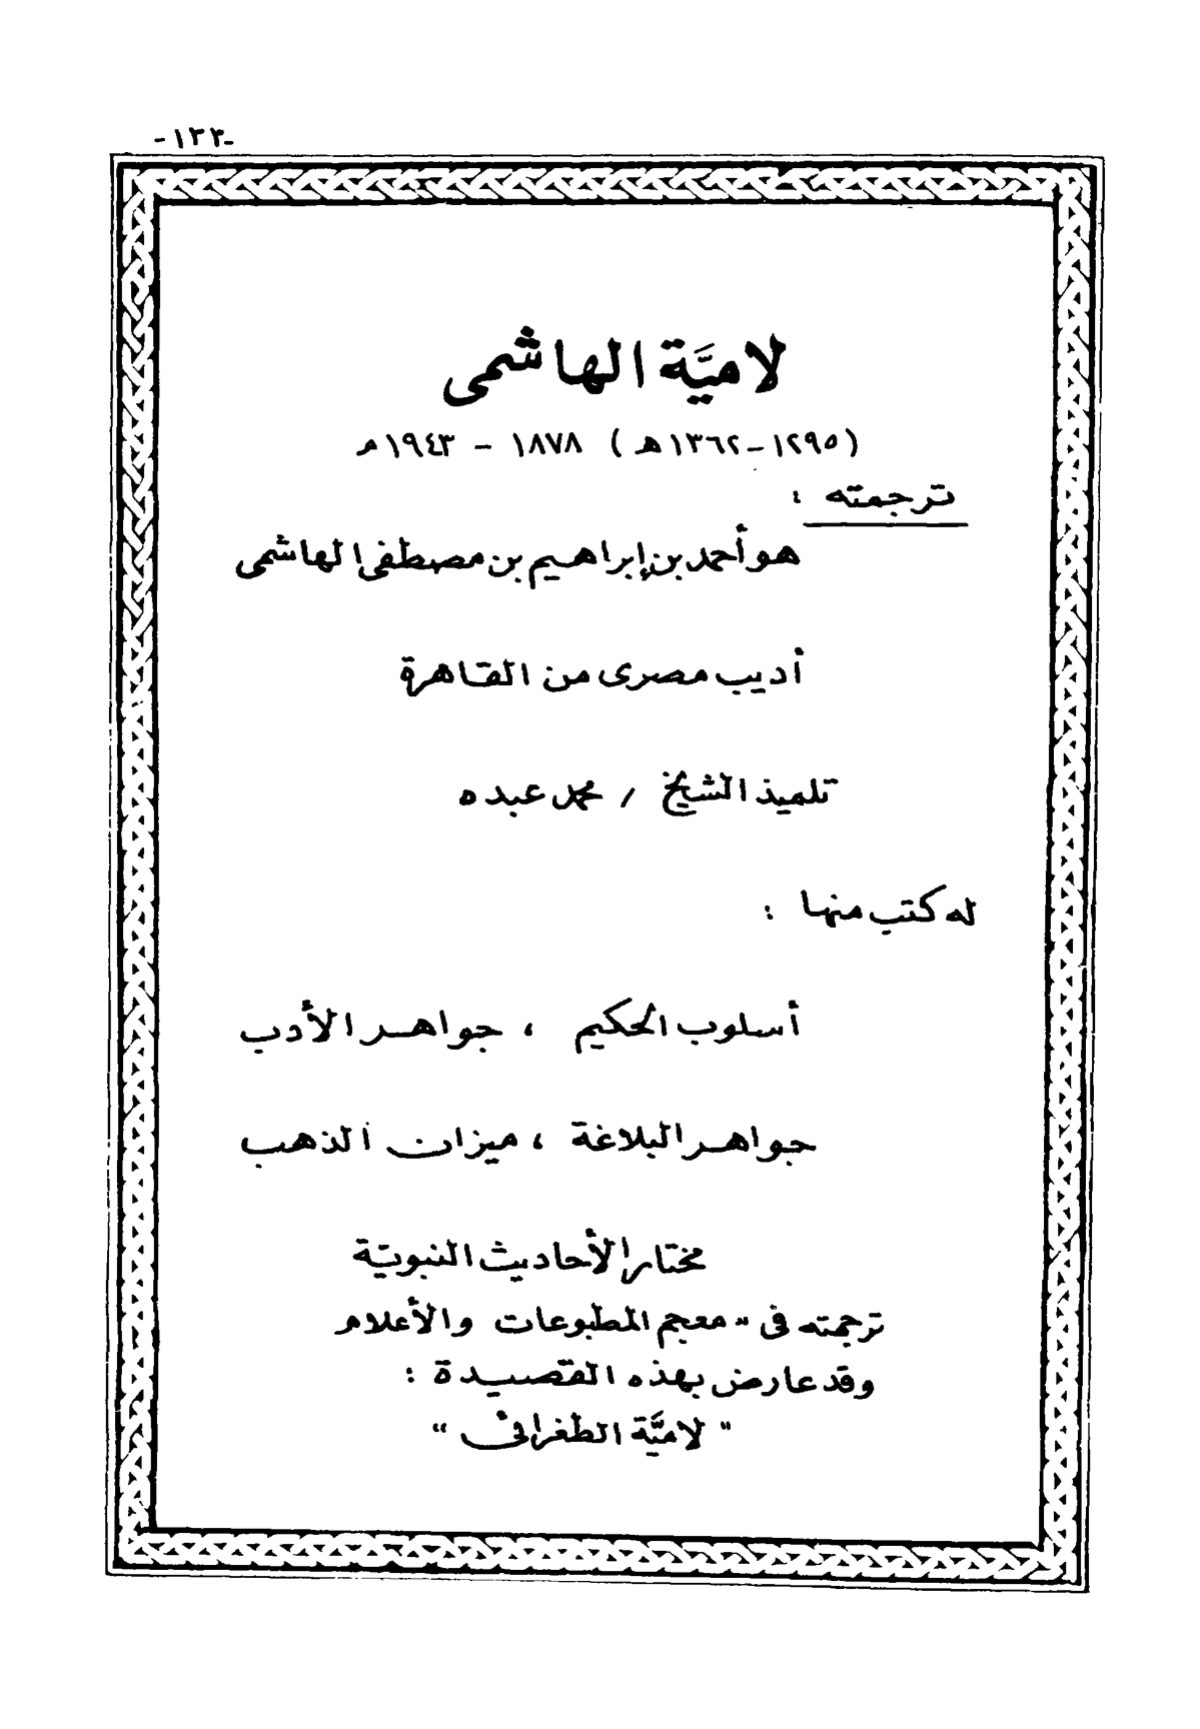 -١٣٣-
لاميَّة الهاشمى
(١٢٩٥-١٣٦٢هـ) ١٨٧٨ - ١٩٤٣م
ترجمته :
هو أحمد بن إبراهيم بن مصطفى الهاشمى
أديب مصرى من القاهرة
تلميذ الشيخ / محمد عبده
له كتب منها :
أسلوب الحكيم ، جواهر الأدب
جواهر البلاغة ، ميزان الذهب
مختار الأحاديث النبويّة
ترجمته فى " معجم المطبوعات والأعلام
وقد عارض بهذه القصيدة :
" لاميَّة الطغرائى "